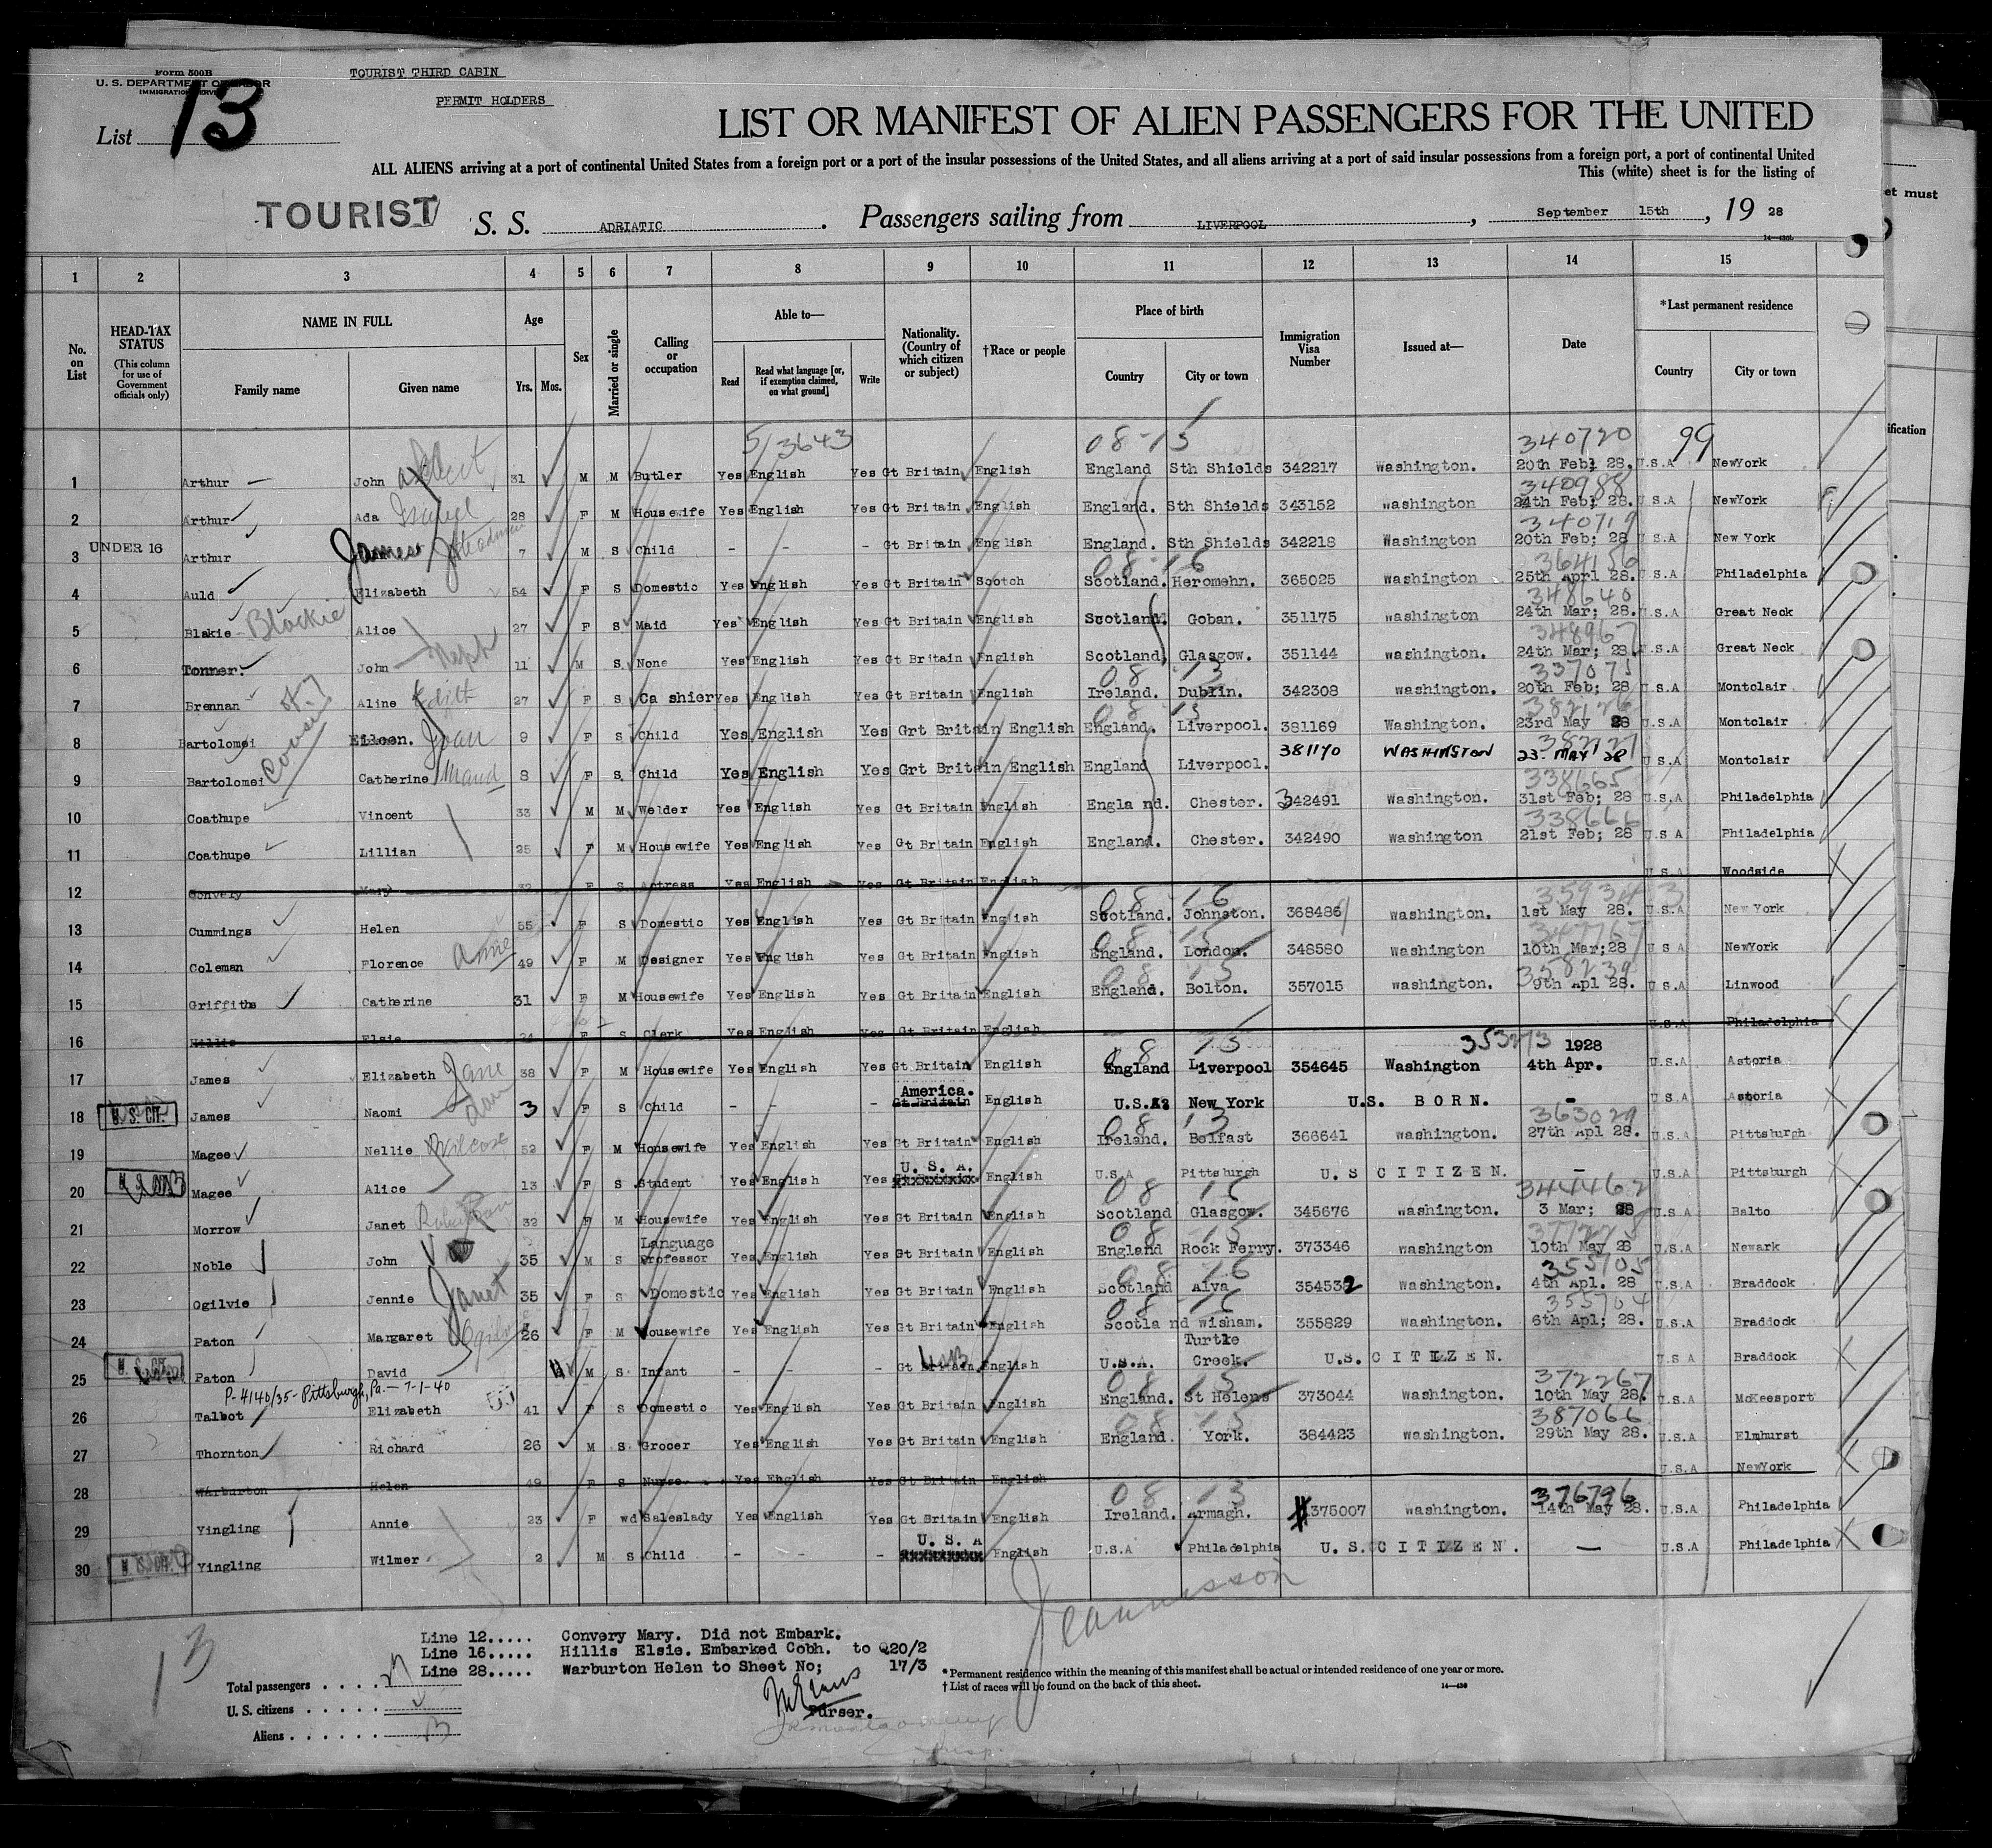 Form 500B
U. S. DEPARTMENT OF LABOR
IMMIGRATION SERVICE
TOURIST THIRD CABIN
PERMIT HOLDERS
List 13
LIST OR MANIFEST OF ALIEN PASSENGERS FOR THE UNITED
ALL ALIENS arriving at a port of continental United States from a foreign port or a port of the insular possessions of the United States, and all aliens arriving at a port of said insular possessions from a foreign port, a port of continental United
This (white) sheet is for the listing of
et must
TOURIST S. S. ADRIATIC. Passengers sailing from LIVERPOOL, September 15th, 19 28
1 2 3 4 5 6 7 8 9 10 11 12 13 14 15
No. on List
HEAD-TAX STATUS (This column for use of Government officials only)
NAME IN FULL
Family name Given name
Age
Yrs. Mos.
Sex
Married or single
Calling or occupation
Able to—
Read Read what language [or, if exemption claimed, on what ground] Write
Nationality. (Country of which citizen or subject)
†Race or people
Place of birth
Country City or town
Immigration Visa Number
Issued at—
Date
*Last permanent residence
Country City or town
ification
5/3643 08-15 340720 99
1 Arthur John Albert 31 M M Butler Yes English Yes Gt Britain English England Sth Shields 342217 Washington. 20th Feb; 28. U.S.A NewYork
340988
2 Arthur Ada Isabel 28 F M Housewife Yes English Yes Gt Britain English England. Sth Shields 343152 Washington 24th Feb; 28. U.S.A NewYork
340719
3 UNDER 16 Arthur James 7 M S Child - - - Gt Britain English England. Sth Shields 342218 Washington 20th Feb; 28 U.S.A New York
08 16 364156
4 Auld Elizabeth 54 F S Domestic Yes English Yes Gt Britain Scotch Scotland. Heromehn. 365025 Washington 25th Aprl 28. U.S.A Philadelphia
348640
5 Blakie Blackie Alice 27 F S Maid Yes English Yes Gt Britain English Scotland. Goban. 351175 washington 24th Mar; 28. U.S.A Great Neck
348967
6 Tonner. John Neph 11 M S. None Yes English Yes Gt Britain English Scotland. Glasgow. 351144 washington. 24th Mar; 28. U.S.A Great Neck
08 13 337075
7 Brennan Aline Edith 27 F S Ca shier Yes English Yes Gt Britain English Ireland. Dublin. 342308 washington. 20th Feb; 28 U.S.A Montclair
08 15 382126
8 Bartolomei Eileen. Joan 9 F S Child Yes English Yes Grt Britain English England. Liverpool. 381169 Washington. 23rd May 28 U.S.A Montclair
382127
9 Bartolomei Catherine Maud 8 F S. Child Yes English Yes Grt Britain English England Liverpool. 381170 WASHINGTON 23. MAY 28 U.S.A Montclair
338665
10 Coathupe Vincent 33 M M Welder Yes English Yes Gt Britain English Engla nd. Chester. 342491 Washington. 31st Feb; 28 U.S.A Philadelphia
338666
11 Coathupe Lillian 25 F M Housewife Yes English Yes Gt Britain English England. Chester. 342490 Washington 21st Feb; 28 U.S.A Philadelphia
12 Convery Mary 32 F S Actress Yes English Yes Gt Britain English U.S.A Woodside
08 16 359343
13 Cummings Helen 55 F S Domestic Yes English Yes Gt Britain English Scotland. Johnston. 368486 washington. 1st May 28. U.S.A New York
08 15 347767
14 Coleman Florence 49 F M Designer Yes English Yes Gt Britain English England. London. 348580 washington 10th Mar;28 U.S.A NewYork
08 15 358239
15 Griffiths Catherine 31 F M Housewife Yes English Yes Gt Britain English England. Bolton. 357015 washington. 9th Apl 28. U.S.A Linwood
16 Hillis Elsie 24 F S Clerk Yes English Yes Gt Britain English U.S.A Philadelphia
08 15 353273 1928
17 James Elizabeth Jane 38 F M Housewife Yes English Yes Gt Britain English England Liverpool 354645 Washington 4th Apr. U.S.A Astoria
America.
18 U.S. CIT. James Naomi 3 F S Child - - - Gt Britain English U.S.A; New York U.S. BORN. - U.S.A Astoria
08 13 363029
19 Magee Nellie Wilcose 52 F M Housewife Yes English Yes Gt Britain English Ireland. Belfast 366641 washington. 27th Apl 28. U.S.A Pittsburgh
U. S. A.
20 Magee Alice 13 F S Student Yes English Yes xxxxxxxxxx English U.S.A Pittsburgh U.S CITIZEN. — U.S.A Pittsburgh
08 16 344462
21 Morrow Janet 32 F M Housewife Yes English Yes Gt Britain English Scotland Glasgow. 345676 washington. 3 Mar; 28 U.S.A Balto
Language 08 15
22 Noble John 35 M S Professor Yes English Yes Gt Britain English England Rock Ferry. 373346 washington 10th May 28 U.S.A Newark
08 16 355705
23 Ogilvie Jennie Janet 35 F S Domestic Yes English Yes Gt Britain English Scotland Alva 354532 washington. 4th Apl. 28 U.S.A Braddock
08 16 355704
24 Paton Margaret Ogilvie 26 F M Housewife Yes English Yes Gt Britain English Scotla nd wisham. 355829 washington. 6th Apl; 28. U.S.A Braddock
Turtle
25 U.S. CIT. Paton David 11 M S Infant - - - Gt Britain. USB English U.S.A. Creek. U.S. CITIZEN. U.S A Braddock
P-4140/35-Pittsburgh, Pa.-7-1-40 08 15 372267
26 Talbot Elizabeth 41 F S Domestic Yes English Yes Gt Britain English England. St Helens 373044 washington. 10th May 28. U.S.A McKeesport
08 15 387066
27 Thornton Richard 26 M S. Grocer Yes English Yes Gt Britain English England. York. 384423 washington. 29th May 28. U.S.A Elmhurst
28 Warburton Helen 49 F S Nurse Yes English Yes Gt Britain English U.S.A NewYork
08 13 376796
29 Yingling Annie 23 F wd Saleslady Yes English Yes Gt Britain English Ireland. Armagh. 375007 washington. 14th May 28. U.S.A Philadelphia
U. S. A
30 U.S. CIT. Yingling Wilmer 2 M S Child - - - xxxxxxxxxx English U.S.A Philadelphia U.S.CITIZEN. — U.S.A Philadelphia
13
Line 12..... Convery Mary. Did not Embark.
Line 16..... Hillis Elsie. Embarked Cobh. to Q20/2
Line 28..... Warburton Helen to Sheet No; 17/3
Total passengers . . . . 27
U. S. citizens . . . . .
Aliens . . . . . .
Purser.
* Permanent residence within the meaning of this manifest shall be actual or intended residence of one year or more.
† List of races will be found on the back of this sheet.